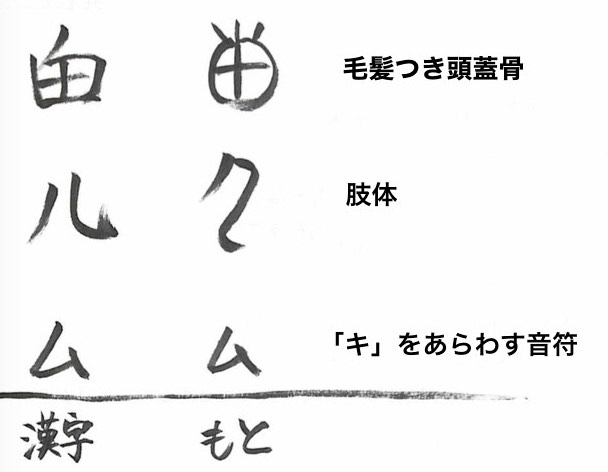 甶 毛髪つき頭蓋骨
儿 肢体
ム ム 「キ」をあらわす音符
漢字 もと